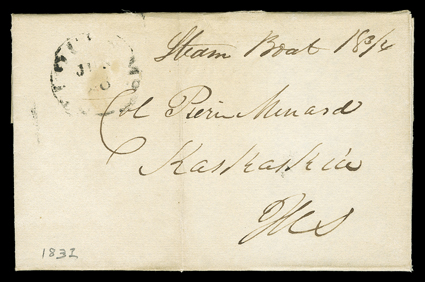 Steam Boat 18 3/4
JUN
Col Pierre Menard
Kaskaskia
Ills
1832